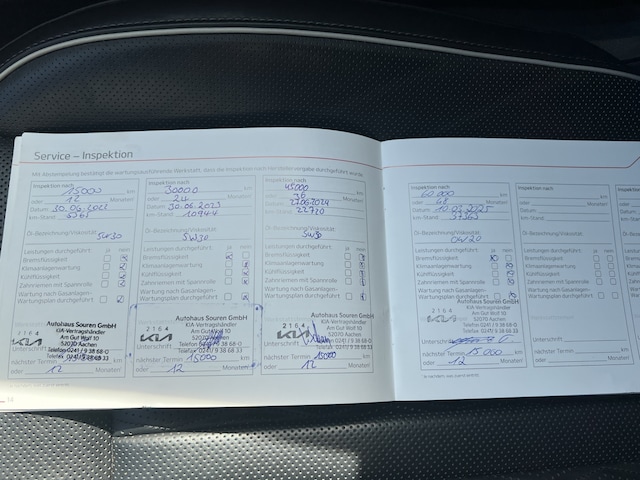 Service – Inspektion
Mit Abstempelung bestätigt die wartungsausführende Werkstatt, dass die Inspektion nach Hersteller vorgabe durchgeführt wurde.
Inspektion nach
15000 km
oder 12 Monate/
Datum 30.06.2022
km-Stand
Öl-Bezeichnung/Viskosität:
5W30
Leistungen durchgeführt: ja nein
Bremsflüssigkeit
Klimaanlagenwartung
Kühlflüssigkeit
Zahnriemen mit Spannrolle
Wartung nach Gasanlagen-
Wartungsplan durchgeführt
Autohaus Souren GmbH
2164 KIA-Vertragshändler
KIA Am Gut Wolf 10
52070 Aachen
Unterschrift Telefon 0241/9 38 68-0
Telefax 0241/9 38 68 33
nächster Termin 15000 km
oder 12 Monate/
Inspektion nach
30000 km
oder 24 Monate/
Datum 30.06.2023
km-Stand 10944
Öl-Bezeichnung/Viskosität:
5W30
Leistungen durchgeführt: ja nein
Bremsflüssigkeit
Klimaanlagenwartung
Kühlflüssigkeit
Zahnriemen mit Spannrolle
Wartung nach Gasanlagen-
Wartungsplan durchgeführt
Autohaus Souren GmbH
2164 KIA-Vertragshändler
KIA Am Gut Wolf 10
52070 Aachen
Unterschrift Telefon 0241/9 38 68-0
Telefax 0241/9 38 68 33
nächster Termin 15000 km
oder 12 Monate/
Inspektion nach
45000 km
oder 36 Monate/
Datum 27.06.2024
km-Stand 22720
Öl-Bezeichnung/Viskosität:
5W30
Leistungen durchgeführt: ja nein
Bremsflüssigkeit
Klimaanlagenwartung
Kühlflüssigkeit
Zahnriemen mit Spannrolle
Wartung nach Gasanlagen-
Wartungsplan durchgeführt
Autohaus Souren GmbH
2164 KIA-Vertragshändler
KIA Am Gut Wolf 10
52070 Aachen
Unterschrift Telefon 0241/9 38 68-0
Telefax 0241/9 38 68 33
nächster Termin 15000 km
oder 12 Monate/
14
Inspektion nach
60.000 km
oder 48 Monate/
Datum
km-Stand
Öl-Bezeichnung/Viskosität:
0W20
Leistungen durchgeführt: ja nein
Bremsflüssigkeit
Klimaanlagenwartung
Kühlflüssigkeit
Zahnriemen mit Spannrolle
Wartung nach Gasanlagen-
Wartungsplan durchgeführt
Autohaus Souren GmbH
2164 KIA-Vertragshändler
KIA Am Gut Wolf 10
52070 Aachen
Unterschrift
nächster Termin 15 000 km
oder 12 Monate/
Inspektion nach
oder
Datum
km-Stand
Öl-Bezeichnung
Leistungen durchgeführt
Bremsflüssigkeit
Klimaanlagenwartung
Kühlflüssigkeit
Zahnriemen mit Spannrolle
Wartung nach Gasanlagen-
Wartungsplan durchgeführt
Unterschrift
nächster Termin
oder